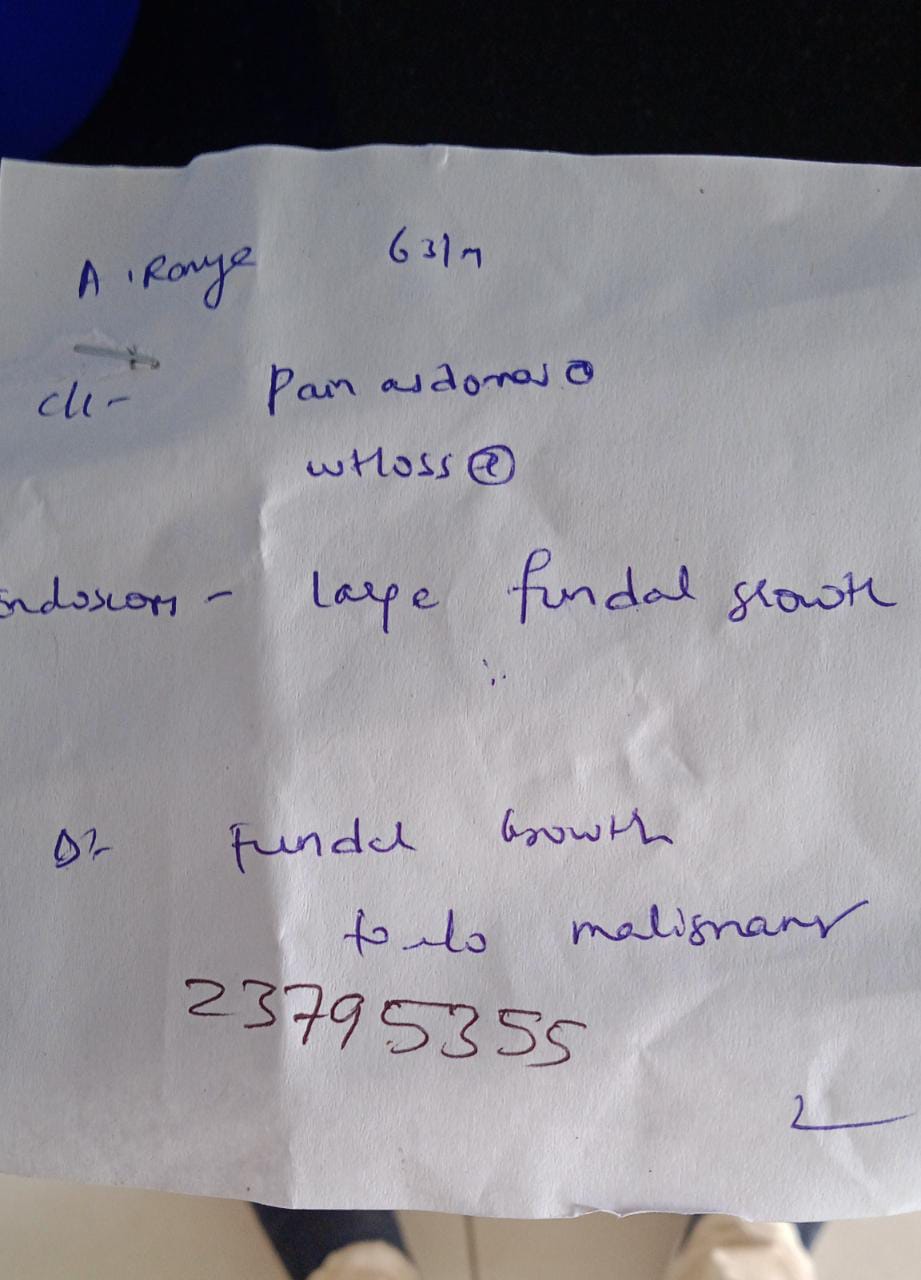 A. Range 63/M
c/c -
Pain abdomen
wt loss
Endoscopy - large fundal growth
D: Fundal Growth
to r/o malignancy
23795355